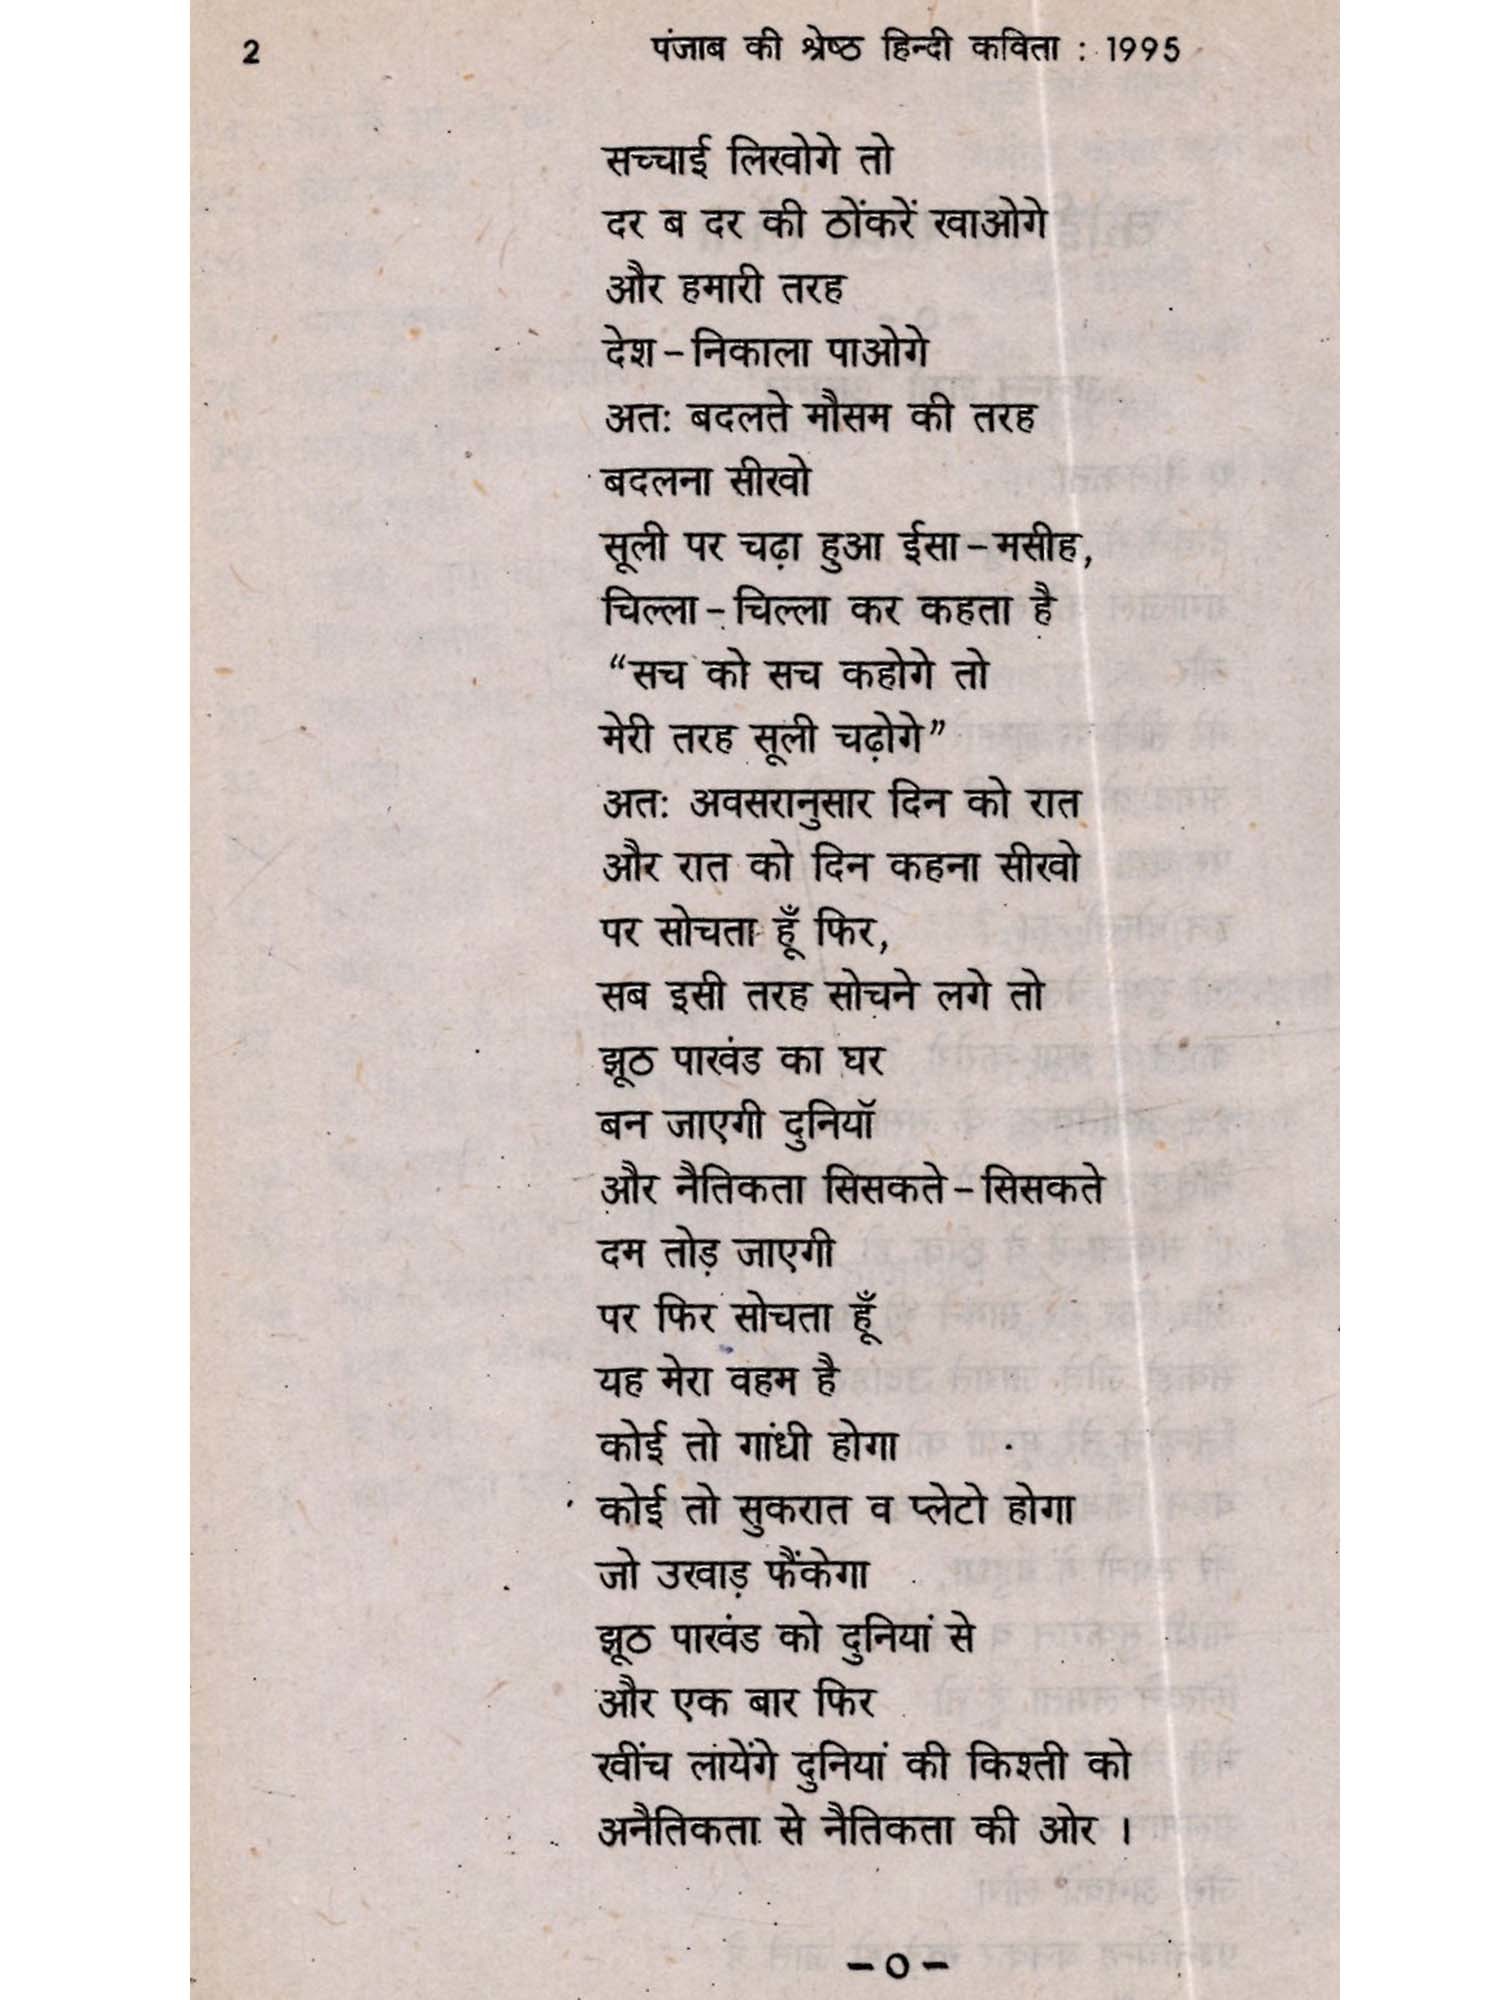 2 पंजाब की श्रेष्ठ हिन्दी कविता : 1995
सच्चाई लिखोगे तो
दर ब दर की ठोंकरें खाओगे
और हमारी तरह
देश-निकाला पाओगे
अतः बदलते मौसम की तरह
बदलना सीखो
सूली पर चढ़ा हुआ ईसा-मसीह,
चिल्ला-चिल्ला कर कहता है
“सच को सच कहोगे तो
मेरी तरह सूली चढ़ोगे”
अतः अवसरानुसार दिन को रात
और रात को दिन कहना सीखो
पर सोचता हूँ फिर,
सब इसी तरह सोचने लगे तो
झूठ पाखंड का घर
बन जाएगी दुनियॉ
और नैतिकता सिसकते-सिसकते
दम तोड़ जाएगी
पर फिर सोचता हूँ
यह मेरा वहम है
कोई तो गांधी होगा
कोई तो सुकरात व प्लेटो होगा
जो उखाड़ फैंकेगा
झूठ पाखंड को दुनियां से
और एक बार फिर
खींच लायेंगे दुनियां की किश्ती को
अनैतिकता से नैतिकता की ओर ।
-०-